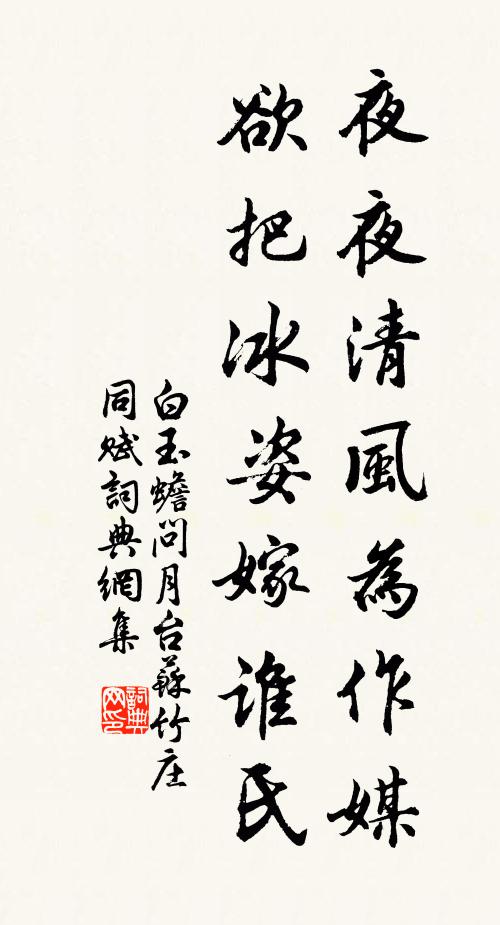 夜夜清風為作媒
欲把冰姿嫁誰氏
白玉蟾問月台蘇竹庄
同賦詞典網集
詞典
网印